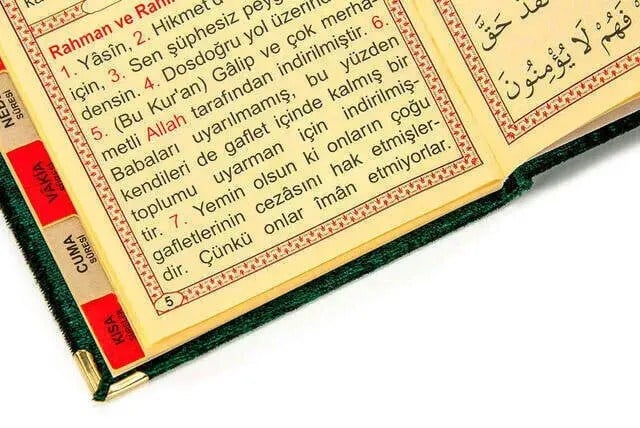 Rahman ve Rahî
1. Yâsîn, 2. Hikmet
için, 3. Sen şüphesiz peyg
densin. 4. Dosdoğru yol üzerin
5. (Bu Kur'an) Gâlip ve çok merha-
metli Allah tarafından indirilmiştir. 6.
Babaları uyarılmamış, bu yüzden
kendileri de gaflet içinde kalmış bir
toplumu uyarman için indirilmiş-
tir. 7. Yemin olsun ki onların çoğu
gafletlerinin cezâsını hak etmişler-
dir. Çünkü onlar îmân etmiyorlar.
5
SÛRESİ
VÂKIA
CUMA
SÛRESİ
KISA
حَقَّ
فَهُمْ لَا يُؤْمِنُونَ